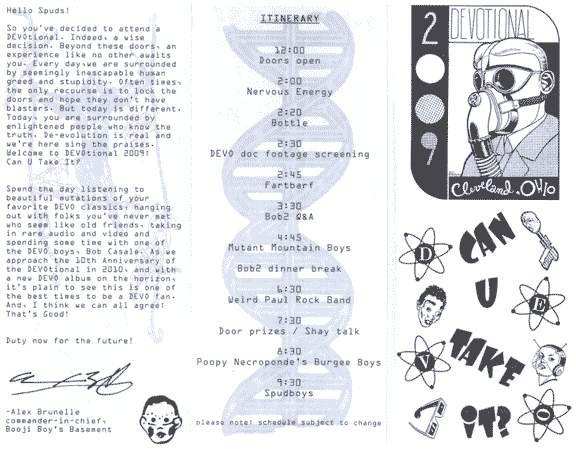 Hello Spuds!
So you've decided to attend a
DEVOtional. Indeed, a wise
decision. Beyond these doors, an
experience like no other awaits
you. Every day,we are surrounded
by seemingly inescapable human
greed and stupidity. Often times,
the only recourse is to lock the
doors and hope they don't have
blasters. But today is different.
Today you are surrounded by
enlightened people who know the
truth. De-evolution is real and
we're here sing the praises.
Welcome to DEVOtional 2009:
Can U Take It?
Spend the day listening to
beautiful mutations of your
favorite DEVO classics, hanging
out with folks you've never met
who seem like old friends, taking
in rare audio and video and
spending some time with one of
the DEVO boys, Bob Casale. As we
approach the 10th Anniversary of
the DEVOtional in 2010, and with
a new DEVO album on the horizon,
it's plain to see this is one of
the best times to be a DEVO fan.
And, I think we can all agree:
That's Good!
Duty now for the future!
-Alex Brunelle
commander-in-chief,
Booji Boy's Basement
ITINERARY
12:00
Doors open
2:00
Nervous Energy
2:20
Bottle
2:30
DEVO doc footage screening
2:45
Fartbarf
3:30
Bob2 Q&A
4:45
Mutant Mountain Boys
Bob2 dinner break
6:30
Weird Paul Rock Band
7:20
Door prizes / Shay talk
8:30
Poopy Necroponde's Burgee Boys
9:30
Spudboys
please note! schedule subject to change
2009
DEVOTIONAL
Cleveland, OHIO
D CAN
U E
V TAKE
IT? O